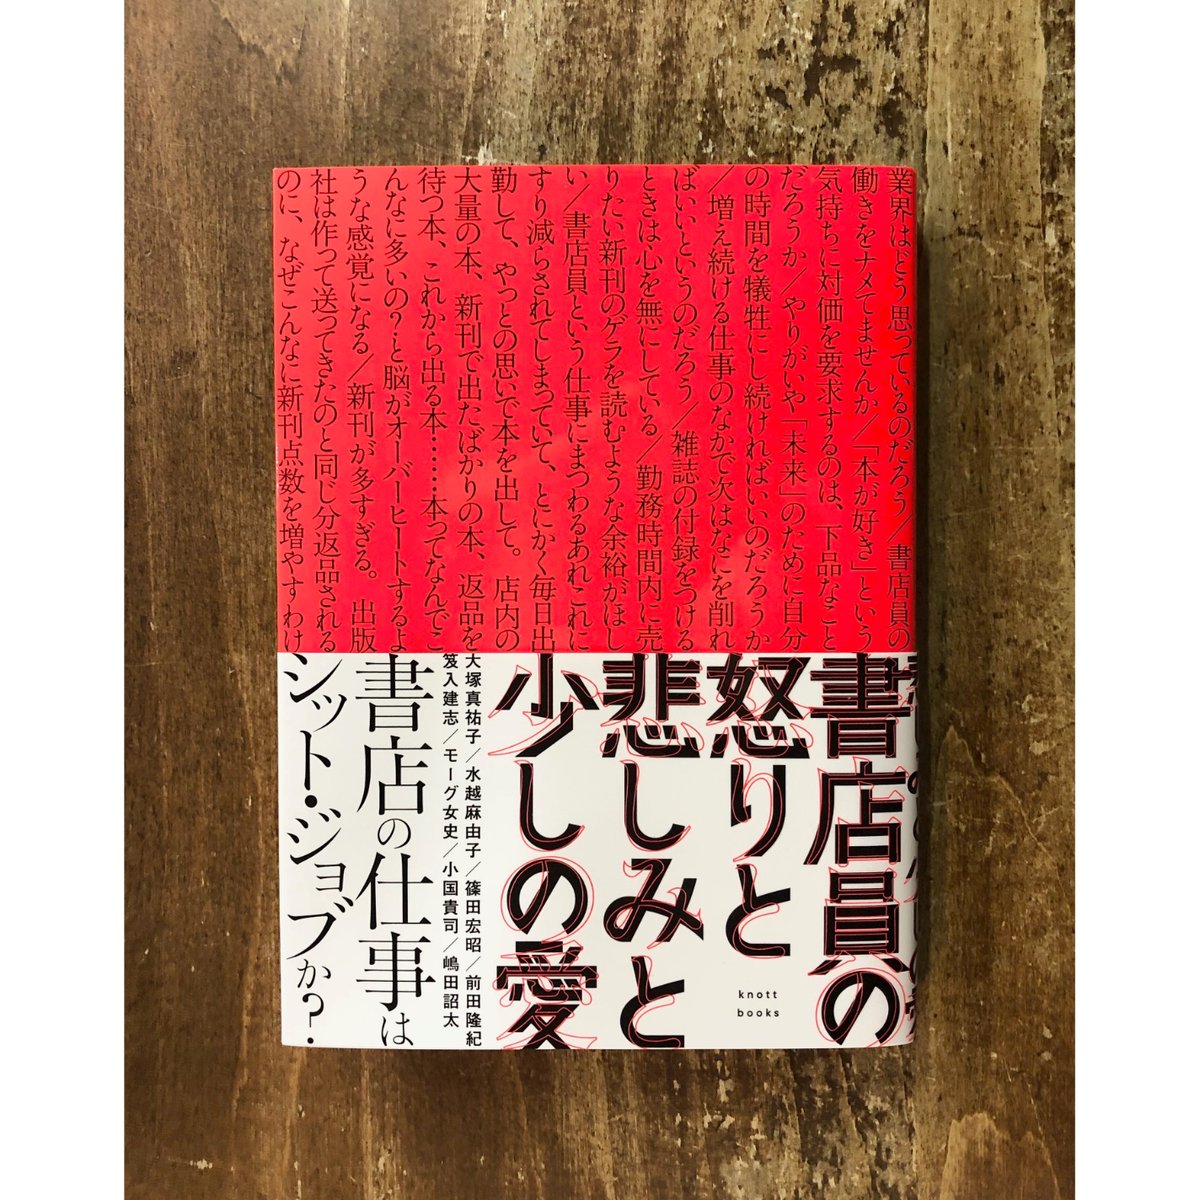 業界はどう思っているのだろう／書店員の
働きをナメてませんか／「本が好き」という
気持ちに対価を要求するのは、下品なこと
だろうか／やりがいや「未来」のために自分
の時間を犠牲にし続ければいいのだろうか
／増え続ける仕事のなかで次はなにを削れ
ばいいというのだろう／雑誌の付録をつける
ときは心を無にしている／勤務時間内に売
りたい新刊のゲラを読むような余裕がほし
い／書店員という仕事にまつわるあれこれに
すり減らされてしまっていて、とにかく毎日出
勤して、やっとの思いで本を出して。店内の
大量の本、新刊で出たばかりの本、返品を
待つ本、これから出る本……本ってなんでこ
んなに多いの？と脳がオーバーヒートするよ
うな感覚になる／新刊が多すぎる。出版
社は作って送ってきたのと同じ分返品される
のに、なぜこんなに新刊点数を増やすわけ
書店員の
怒りと
悲しみと
少しの愛
knott
books
大塚真祐子／水越麻由子／篠田宏昭／前田隆紀
笈入建志／モーグ女史／小国貴司／嶋田詔太
書店の仕事は
シット・ジョブか？